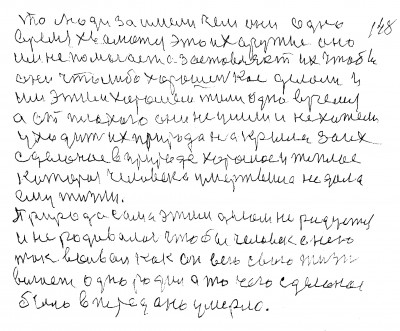 что люди заимели чем они одно 148
время хвалют это их оружие оно
им не помогает а заставляет их чтобы
они что либо хорошее кое делали и
им этим хорошем жили одно время
а от плохого они не ушли и не хотели
уходит их природа на крылла за их
сделаное в природе хорошое и теплое
которы человека умертвила не дала
ему жизни.
Природа сама этим делом не радуется
и не родивалас чтобы человек с нею
так воевал как он всю свою жизн
воюет одно родил а то чего сделаное
было в перед ань умерло.